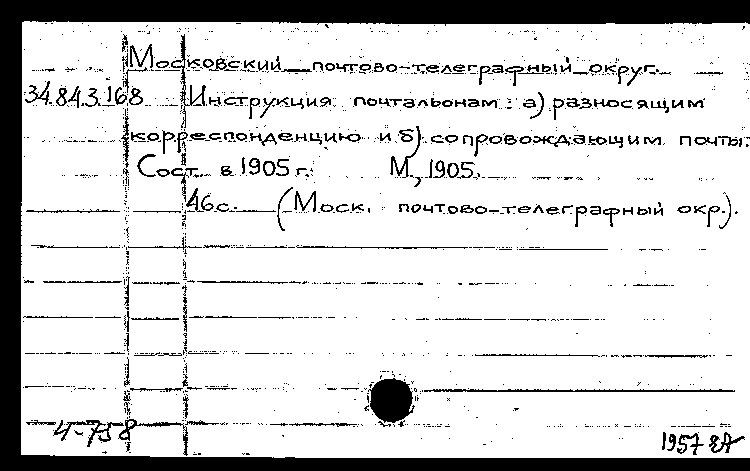 Московский почтово-телеграфный округ.
34.843.168 Инструкция почтальонам: а) разносящим
корреспонденцию и б) сопровождающим почты.
Сост. в 1905 г. М., 1905.
46с. (Моск. почтово-телеграфный окр.).
4-758
1957